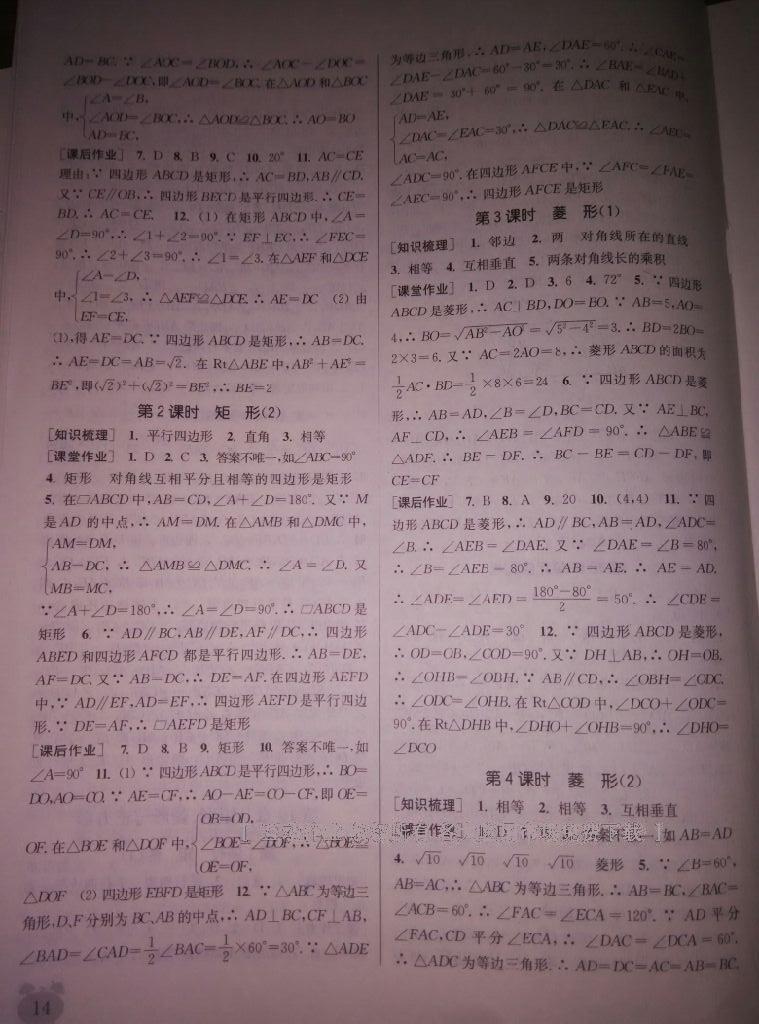 AD=BC.∵∠AOC=∠BOD,∴∠AOC-∠DOC=
∠BOD-∠DOC,即∠AOD=∠BOC.在△AOD和△BOC
中,{∠A=∠B,
∠AOD=∠BOC,∴△AOD≌△BOC.∴AO=BO
AD=BC,
[课后作业] 7. D 8. B 9. C 10. 20° 11. AC=CE
理由:∵四边形ABCD是矩形,∴AC=BD,AB∥CD.
又∵CE∥OB,∴四边形BECD是平行四边形.∴CE=
BD.∴AC=CE. 12. (1) 在矩形ABCD中,∠A=
∠D=90°,∴∠1+∠2=90°.∵EF⊥EC,∴∠FEC=
90°.∴∠2+∠3=90°.∴∠1=∠3.在△AEF和△DCE
中,{∠A=∠D,
∠1=∠3,∴△AEF≌△DCE.∴AE=DC (2) 由
EF=CE,
(1),得AE=DC.∵四边形ABCD是矩形,∴AB=DC.
∴AE=DC=AB=√2. 在Rt△ABE中,AB²+AE²=
BE²,即(√2)²+(√2)²=BE²,∴BE=2
第2课时 矩 形(2)
[知识梳理] 1. 平行四边形 2. 直角 3. 相等
[课堂作业] 1. D 2. C 3. 答案不唯一,如∠ABC=90°
4. 矩形 对角线互相平分且相等的四边形是矩形
5. 在□ABCD中,AB=CD,∠A+∠D=180°. 又∵M
是AD的中点,∴AM=DM.在△AMB和△DMC中,
{AM=DM,
AB=DC,∴△AMB≌△DMC.∴∠A=∠D.又
MB=MC,
∵∠A+∠D=180°,∴∠A=∠D=90°.∴□ABCD是
矩形 6. ∵AD∥BC,AB∥DE,AF∥DC,∴四边形
ABED和四边形AFCD都是平行四边形.∴AB=DE,
AF=DC.又∵AB=DC,∴DE=AF.在四边形AEFD
中,∵AD∥EF,AD=EF,∴四边形AEFD是平行四边
形.∵DE=AF,∴□AEFD是矩形
[课后作业] 7. D 8. B 9. 矩形 10. 答案不唯一,如
∠A=90° 11. (1) ∵四边形ABCD是平行四边形,∴BO=
DO,AO=CO.∵AE=CF,∴AO-AE=CO-CF,即OE=
OF.在△BOE和△DOF中,{OB=OD,
∠BOE=∠DOF,∴△BOE≌
OE=OF,
△DOF (2) 四边形EBFD是矩形 12. ∵△ABC为等边三
角形,D、F分别为BC、AB的中点,∴AD⊥BC,CF⊥AB,
∠BAD=∠CAD=1/2∠BAC=1/2×60°=30°.∵△ADE
14
为等边三角形,∴AD=AE,∠DAE=60°.∴∠CAE=
∠DAE-∠DAC=60°-30°=30°.∴∠BAE=∠BAD+
∠DAE=30°+60°=90°.在△DAC和△EAC中,
{AD=AE,
∠DAC=∠EAC=30°,∴△DAC≌△EAC.∴∠AEC=
AC=AC,
∠ADC=90°.在四边形AFCE中,∵∠AFC=∠FAE=
∠AEC=90°,∴四边形AFCE是矩形
第3课时 菱 形(1)
[知识梳理] 1. 邻边 2. 两 对角线所在的直线
3. 相等 4. 互相垂直 5. 两条对角线长的乘积
[课堂作业] 1. D 2. D 3. 6 4. 72° 5. ∵四边形
ABCD是菱形,∴AC⊥BD,DO=BO.∵AB=5,AO=
4,∴BO=√(AB²-AO²)=√(5²-4²)=3.∴BD=2BO=
2×3=6.又∵AC=2AO=8,∴菱形ABCD的面积为
1/2AC·BD=1/2×8×6=24 6. ∵四边形ABCD是菱
形,∴AB=AD,∠B=∠D,BC=CD.又∵AE⊥BC,
AF⊥CD,∴∠AEB=∠AFD=90°.∴△ABE≌
△ADF.∴BE=DF.∴BC-BE=CD-DF,即
CE=CF
[课后作业] 7. B 8. A 9. 20 10. (4,4) 11. ∵四
边形ABCD是菱形,∴AD∥BC,AB=AD,∠ADC=
∠B.∴∠AEB=∠DAE.又∵∠DAE=∠B=80°,
∴∠B=∠AEB=80°.∴AB=AE.∴AE=AD.
∴∠ADE=∠AED=(180°-80°)/2=50°.∴∠CDE=
∠ADC-∠ADE=30° 12. ∵四边形ABCD是菱形,
∴OD=OB,∠COD=90°.又∵DH⊥AB,∴OH=OB.
∴∠OHB=∠OBH.∵AB∥CD,∴∠OBH=∠ODC.
∴∠ODC=∠OHB.在Rt△COD中,∠DCO+∠ODC=
90°.在Rt△DHB中,∠DHO+∠OHB=90°,∴∠DHO=
∠DCO
第4课时 菱 形(2)
[知识梳理] 1. 相等 2. 相等 3. 互相垂直
如AB=AD
4. √10 √10 √10 √10 菱形 5. ∵∠B=60°,
AB=AC,∴△ABC为等边三角形.∴AB=BC,∠BAC=
∠ACB=60°.∴∠FAC=∠ECA=120°.∵AD平分
∠FAC,CD平分∠ECA,∴∠DAC=∠DCA=60°.
∴△ADC为等边三角形.∴AD=DC=AC=AB=BC.